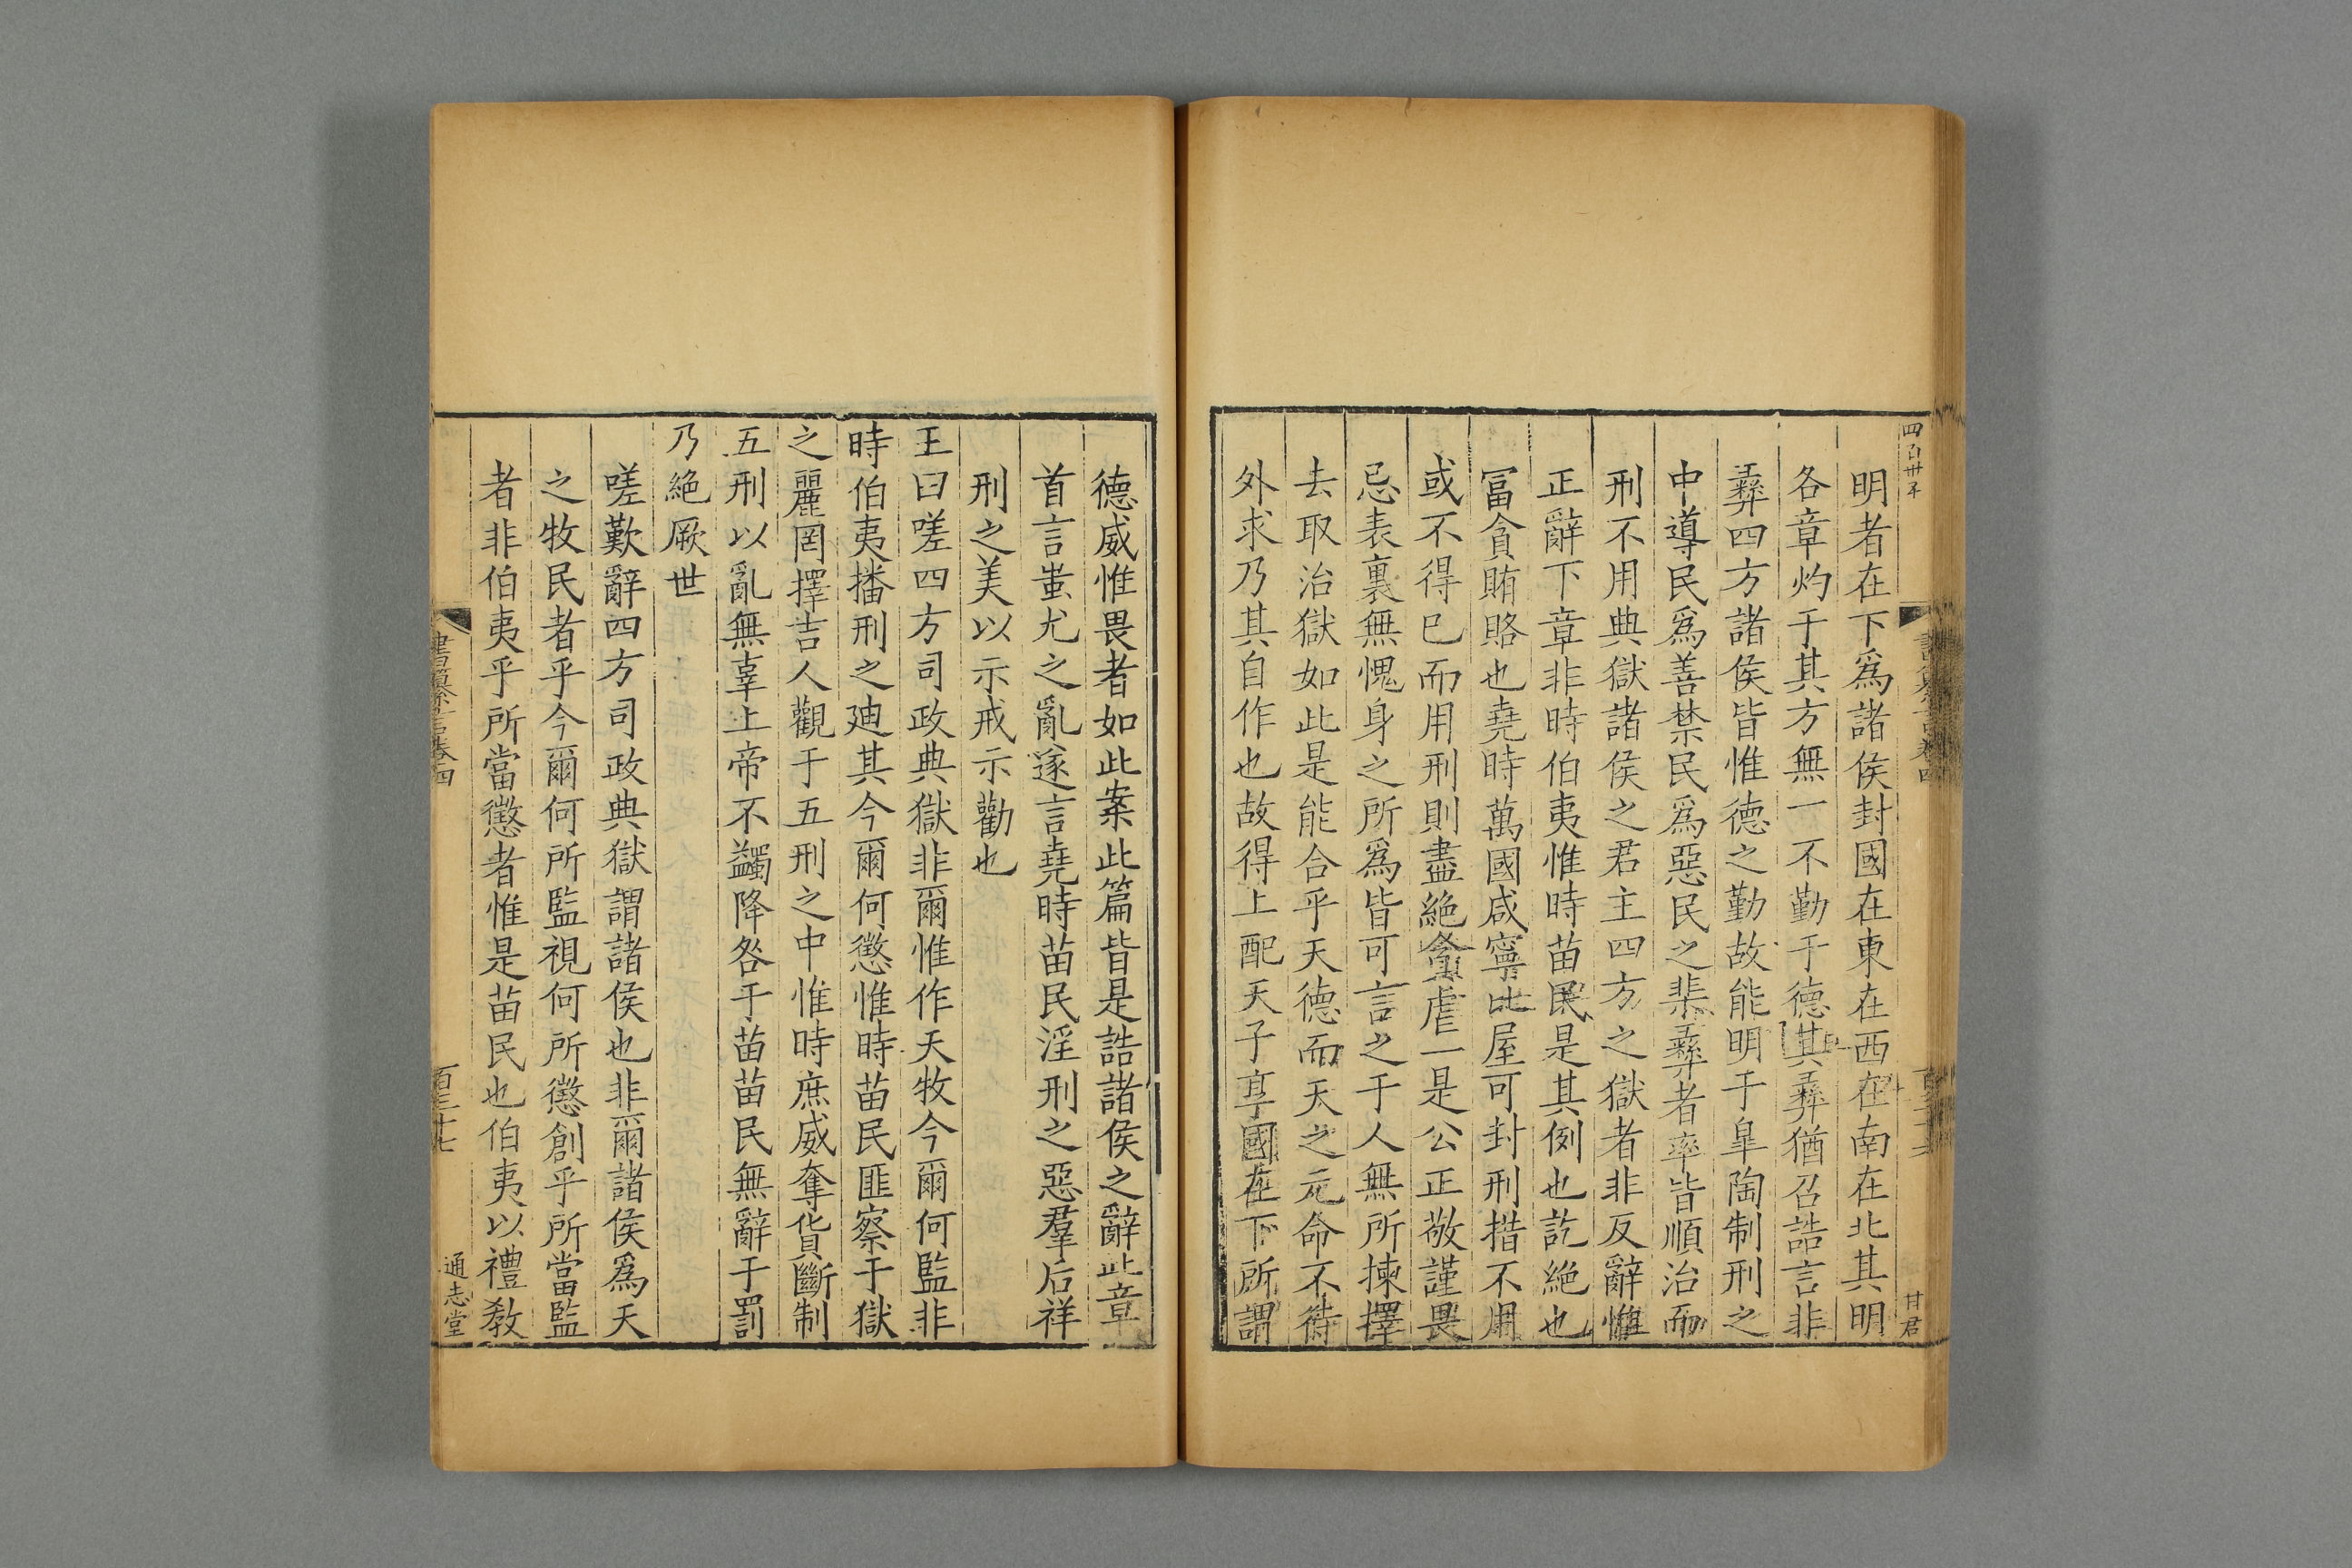 四百卅五
甘君
明者在下爲諸侯封國在東在西在南在北其明
各章灼于其方無一不勤于德其彞猶召誥言非
彞四方諸侯皆惟德之勤故能明于臯陶制刑之
中導民爲善禁民爲惡民之棐彞者率皆順治而
刑不用典獄諸侯之君主四方之獄者非反辭惟
正辭下章非時伯夷惟時苗民是其例也訖絶也
冨貪賄賂也堯時萬國咸寧比屋可封刑措不用
或不得已而用刑則盡絶貪虐一是公正敬謹畏
忌表裏無愧身之所爲皆可言之于人無所揀擇
去取治獄如此是能合乎天德而天之元命不待
外求乃其自作也故得上配天子享國在下所謂
德威惟畏者如此案此篇皆是誥諸侯之辭此章
首言蚩尤之亂遂言堯時苗民淫刑之惡羣后祥
刑之美以示戒示勸也
王曰嗟四方司政典獄非爾惟作天牧今爾何監非
時伯夷播刑之廸其今爾何懲惟時苗民匪察于獄
之麗罔擇吉人觀于五刑之中惟時庶威奪貨斷制
五刑以亂無辜上帝不蠲降咎于苗苗民無辭于罰
乃絶厥世
嗟歎辭四方司政典獄謂諸侯也非爾諸侯爲天
之牧民者乎今爾何所監視何所懲創乎所當監
者非伯夷乎所當懲者惟是苗民也伯夷以禮教
書纂言卷四
百三十七
通志堂